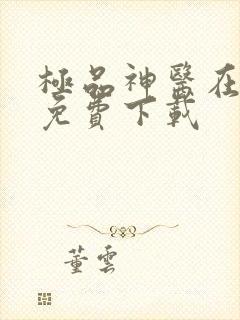 極品神醫在
免費下載
董雲